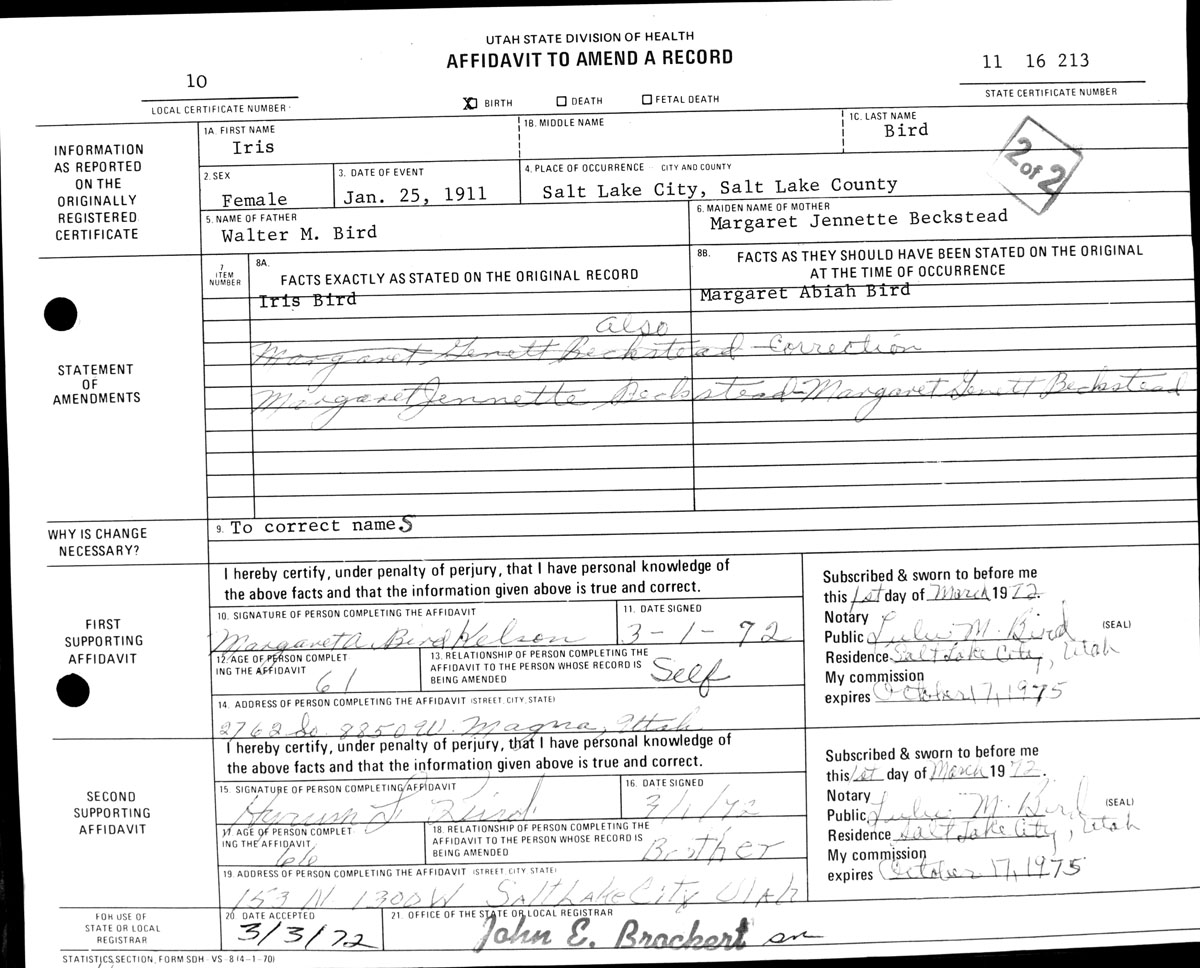 UTAH STATE DIVISION OF HEALTH
AFFIDAVIT TO AMEND A RECORD
10
LOCAL CERTIFICATE NUMBER
11 16 213
STATE CERTIFICATE NUMBER
X BIRTH DEATH FETAL DEATH
INFORMATION
AS REPORTED
ON THE
ORIGINALLY
REGISTERED
CERTIFICATE
1A. FIRST NAME
Iris
1B. MIDDLE NAME
1C. LAST NAME
Bird
2 of 2
2. SEX
Female
3. DATE OF EVENT
Jan. 25, 1911
4. PLACE OF OCCURRENCE - CITY AND COUNTY
Salt Lake City, Salt Lake County
5. NAME OF FATHER
Walter M. Bird
6. MAIDEN NAME OF MOTHER
Margaret Jennette Beckstead
STATEMENT
OF
AMENDMENTS
7
ITEM
NUMBER
8A.
FACTS EXACTLY AS STATED ON THE ORIGINAL RECORD
8B. FACTS AS THEY SHOULD HAVE BEEN STATED ON THE ORIGINAL
AT THE TIME OF OCCURRENCE
Iris Bird
Margaret Abiah Bird
also
Margaret Genett Beckstead - Correction
Margaret Jennette Beckstead - Margaret Genett Beckstead
WHY IS CHANGE
NECESSARY?
9. To correct nameS
FIRST
SUPPORTING
AFFIDAVIT
I hereby certify, under penalty of perjury, that I have personal knowledge of
the above facts and that the information given above is true and correct.
10. SIGNATURE OF PERSON COMPLETING THE AFFIDAVIT
Margaret A. Bird Kelson
11. DATE SIGNED
3-1-72
12. AGE OF PERSON COMPLET
ING THE AFFIDAVIT
61
13. RELATIONSHIP OF PERSON COMPLETING THE
AFFIDAVIT TO THE PERSON WHOSE RECORD IS
BEING AMENDED
Self
14. ADDRESS OF PERSON COMPLETING THE AFFIDAVIT (STREET, CITY, STATE)
2762 So. 8850 W. Magna, Utah
Subscribed & sworn to before me
this 1st day of March 1972.
Notary
Public Lulu M. Bird (SEAL)
Residence Salt Lake City, Utah
My commission
expires October 17, 1975
SECOND
SUPPORTING
AFFIDAVIT
I hereby certify, under penalty of perjury, that I have personal knowledge of
the above facts and that the information given above is true and correct.
15. SIGNATURE OF PERSON COMPLETING AFFIDAVIT
Hyrum J. Bird
16. DATE SIGNED
3/1/72
17. AGE OF PERSON COMPLET
ING THE AFFIDAVIT
66
18. RELATIONSHIP OF PERSON COMPLETING THE
AFFIDAVIT TO THE PERSON WHOSE RECORD IS
BEING AMENDED
Brother
19. ADDRESS OF PERSON COMPLETING THE AFFIDAVIT (STREET, CITY, STATE)
153 N 1300 W Salt Lake City Utah
Subscribed & sworn to before me
this 1st day of March 1972.
Notary
Public Lulu M. Bird (SEAL)
Residence Salt Lake City, Utah
My commission
expires October 17, 1975
FOR USE OF
STATE OR LOCAL
REGISTRAR
20. DATE ACCEPTED
3/3/72
21. OFFICE OF THE STATE OR LOCAL REGISTRAR
John E. Brockert
STATISTICS SECTION, FORM SDH - VS - 8 (4-1-70)